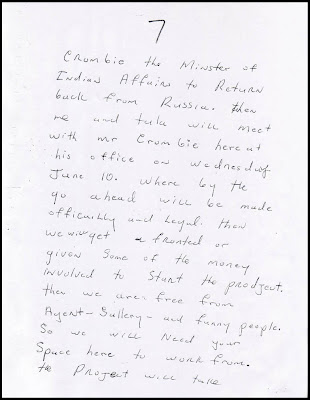 7
Crombie the Minster of
Indian Affairs to Return
back from Russia. then
me and tula will meet
with mr Crombie here at
his office on wednesday
June 10. where by the
go ahead will be made
officailly and Legul. then
we will get a fronted or
given some of the money
involved to Start the prodject.
then we are free from
Agent- Gallery- and funny people.
So we will Need your
Space here to work from.
the Project will take